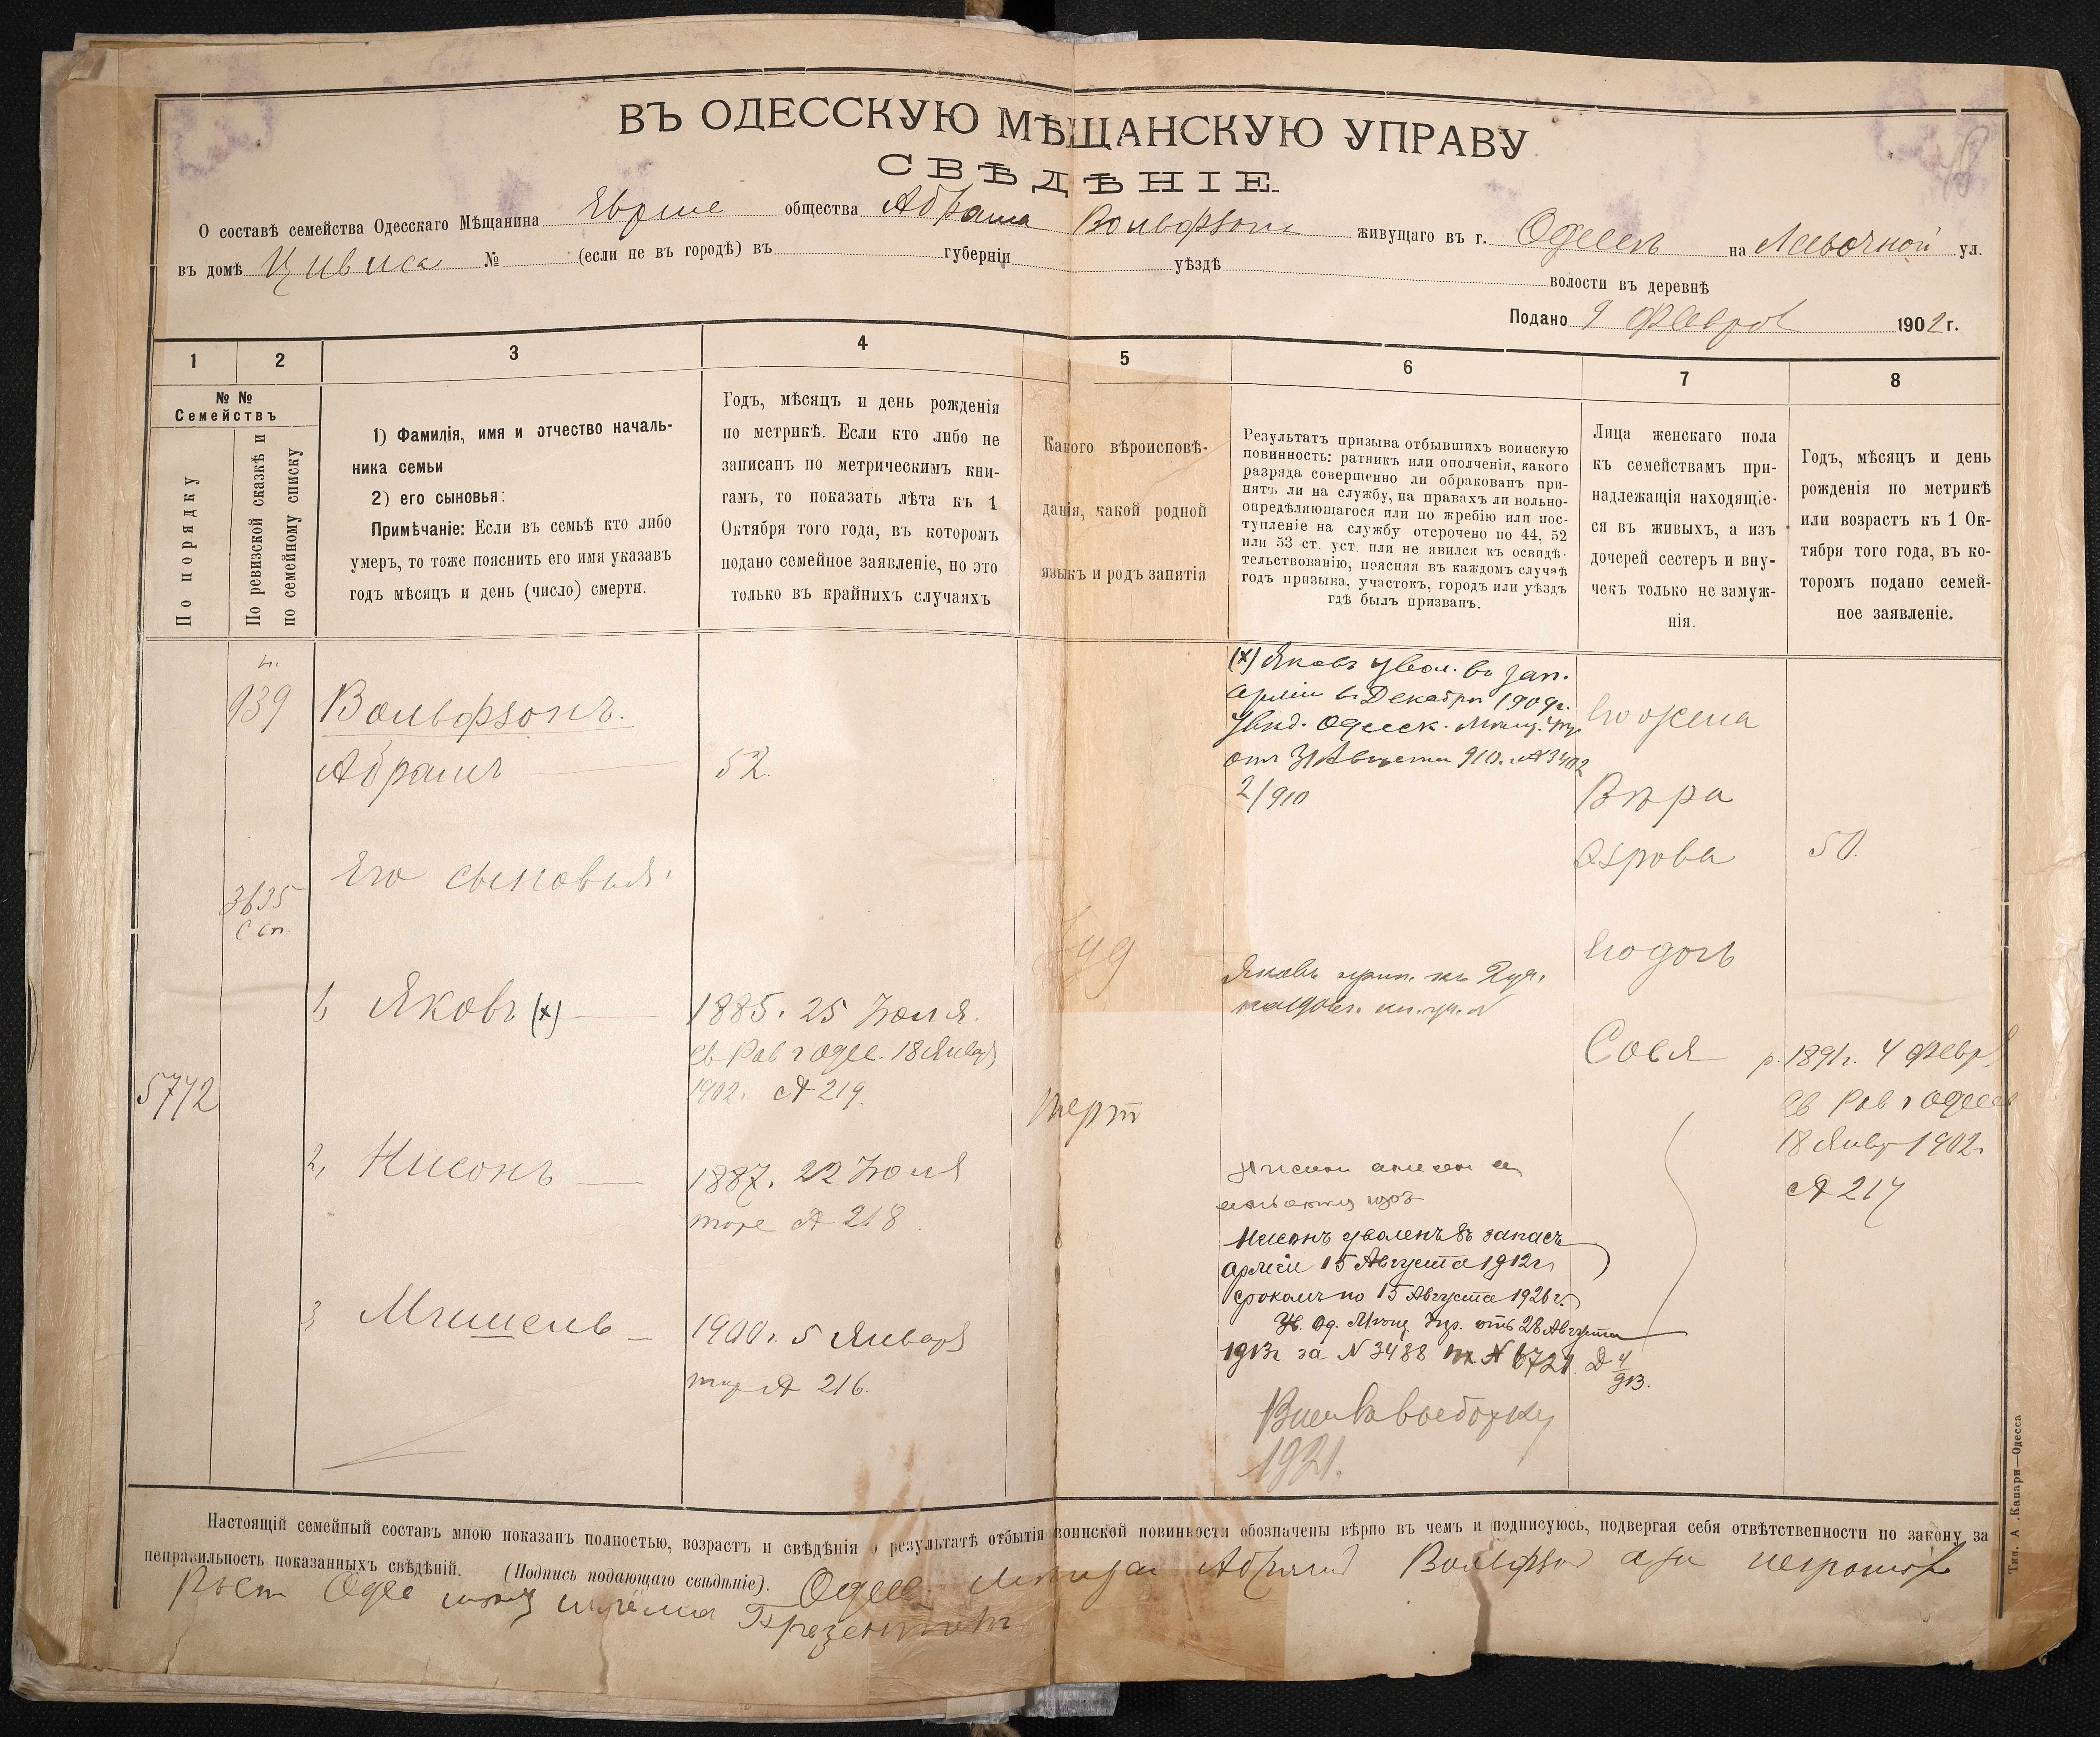 ВЪ ОДЕССКУЮ МѢЩАНСКУЮ УПРАВУ
СВѢДѢНІЕ.
О составѣ семейства Одесскаго Мѣщанина Евреи общества Абрама Вольфзона живущаго въ г. Одессѣ на ул.
въ домѣ Цивиса № (если не въ городѣ) въ губерніи уѣздѣ волости въ деревнѣ
Подано 9 Феврал 1902 г.
1 2 3 4 5 6 7 8
№ №
Семействъ
По порядку
По ревизской сказкѣ и
по семейному списку
1) Фамилія, имя и отчество началь-
ника семьи
2) его сыновья:
Примѣчаніе: Если въ семьѣ кто либо
умеръ, то тоже пояснить его имя указавъ
годъ мѣсяцъ и день (число) смерти.
Годъ, мѣсяцъ и день рожденія
по метрикѣ. Если кто либо не
записанъ по метрическимъ кни-
гамъ, то показать лѣта къ 1
Октября того года, въ которомъ
подано семейное заявленіе, но это
только въ крайнихъ случаяхъ
Какого вѣроисповѣ-
данія, какой родной
языкъ и родъ занятія
Результатъ призыва отбывшихъ воинскую
повинность: ратникъ или ополченія, какого
разряда совершенно ли обракованъ при-
нятъ ли на службу, на правахъ ли вольно-
опредѣляющагося или по жребію или пос-
тупленіе на службу отсрочено по 44, 52
или 53 ст. уст. или не явился къ освидѣ-
тельствованію, поясняя въ каждомъ случаѣ
годъ призыва, участокъ, городъ или уѣздъ
гдѣ былъ призванъ.
Лица женскаго пола
къ семействамъ при-
надлежащія находящіе-
ся въ живыхъ, а изъ
дочерей сестеръ и вну-
чекъ только не замуж-
нія.
Годъ, мѣсяцъ и день
рожденія по метрикѣ
или возрастъ къ 1 Ок-
тября того года, въ ко-
торомъ подано семей-
ное заявленіе.
939
Вольфзонъ.
Абрамъ 52.
Его сыновья:
3635
с сп.
5772
1, Яковъ (х) 1885. 25 Іюля.
Св Рав г Одес. 18 Январ
1902. № 219.
2, Нисонъ 1887. 22 Іюля
тоже № 218
3 1900. 5 Январ
№ 216.
Іуд
(х) Яковъ увол. въ зап.
арміи въ Декабрѣ 1909г.
Увѣд. Одесск. Мѣщ. Упр.
отъ 31 Августа 910. № 3402
2/910
Яковъ прип. къ 2 уч.
Нисонъ уволенъ въ запасъ
арміи 15 Августа 1912г.
срокомъ по 15 Августа 1926г.
Ув. Од. Мѣщ. Упр. отъ 28 Августа
1913г за N 3488 N 6721. Д 4/913.
1921.
Его жена
Вѣра
50.
Его дочь
Сося р. 1891г. 4 Февр
Св Рав г Одессы
18 Янвр 1902г
№ 217
Настоящій семейный составъ мною показанъ полностью, возрастъ и свѣдѣнія о результатѣ отбытія воинской повинности обозначены вѣрно въ чемъ и подписуюсь, подвергая себя отвѣтственности по закону за
неправильность показанныхъ свѣдѣній. (Подпись подающаго свѣдѣніе). Одес. Абрамъ Вольфзон а за неграмот
Тип. А. Капари—Одесса